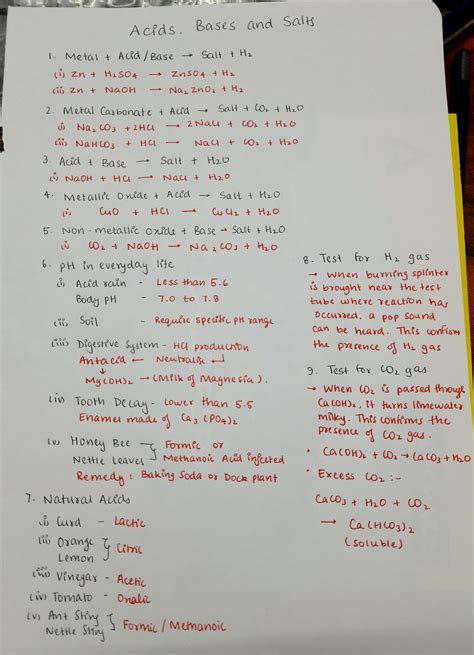 Acids, Bases and Salts
1. Metal + Acid/Base → Salt + H2
(i) Zn + H2SO4 → ZnSO4 + H2
(ii) Zn + NaOH → Na2ZnO2 + H2
2. Metal Carbonate + Acid → Salt + CO2 + H2O
(i) Na2CO3 + 2HCl → 2NaCl + CO2 + H2O
(ii) NaHCO3 + HCl → NaCl + CO2 + H2O
3. Acid + Base → Salt + H2O
(i) NaOH + HCl → NaCl + H2O
4. Metallic Oxide + Acid → Salt + H2O
(i) CuO + HCl → CuCl2 + H2O
5. Non-metallic oxide + Base → Salt + H2O
(i) CO2 + NaOH → Na2CO3 + H2O
6. pH in everyday life
(i) Acid rain - Less than 5.6
Body pH - 7.0 to 7.8
(ii) Soil - Require specific pH range
(iii) Digestive System - HCl production
Antacid ← Neutralise
Mg(OH)2 → (Milk of Magnesia).
(iv) Tooth Decay - lower than 5.5
Enamel made of Ca3(PO4)2
(v) Honey Bee - Formic or
Nettle Leaves Methanoic Acid injected
Remedy: Baking Soda or Dock plant
7. Natural Acids
(i) Curd - Lactic
(ii) Orange
Lemon } Citric
(iii) Vinegar - Acetic
(iv) Tomato - Oxalic
(v) Ant Sting
Nettle Sting } Formic / Methanoic
8. Test for H2 gas
→ When burning splinter
is brought near the test
tube where reaction has
occurred, a pop sound
can be heard. This confirms
the presence of H2 gas
9. Test for CO2 gas
→ When CO2 is passed through
Ca(OH)2, it turns limewater
milky. This confirms the
presence of CO2 gas.
• Ca(OH)2 + CO2 → CaCO3 + H2O
• Excess CO2 :-
CaCO3 + H2O + CO2
→ Ca(HCO3)2
(soluble)